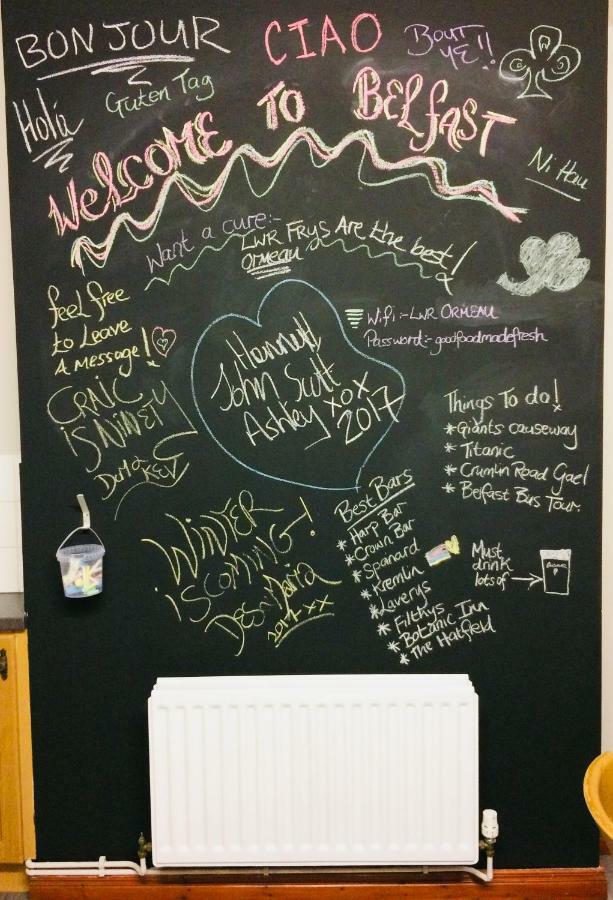 BONJOUR
CIAO
BOUT
YE!!
Hola
Guten Tag
WELCOME TO BELFAST
Ni Hau
Want a cure:-
LWR FRYS ARe the best!
ORMEAU
feel free
to Leave
A message!
Wifi:- LWR ORMEAU
Password:- goodfoodmadefresh
John Scott
Ashley xox
2017
CRAIC
iS NINETY
Things To do!
*Giants causeway
*Titanic
*Crumlin Road Gael
*Belfast Bus Tour.
WINTER
iS COMING!
2017 xx
Best Bars
*Harp Bar
*Crown Bar
*Spanard
*Kremlin
*Laverys
*Filthys
*Botanic Inn
*The Hatfield
Must
drink
lots of